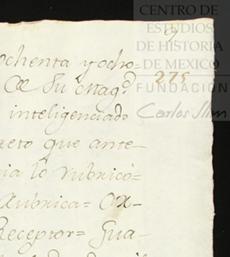 CENTRO DE
ESTUDIOS
DE HISTORIA
DE MEXICO
FUNDACIÓN
Carlos Slim
275
ochenta y ocho-
De Su Mag.d
inteligenciado
reto que ante-
ia lo rubricó-
Rubrica=
Receptor= Gua-